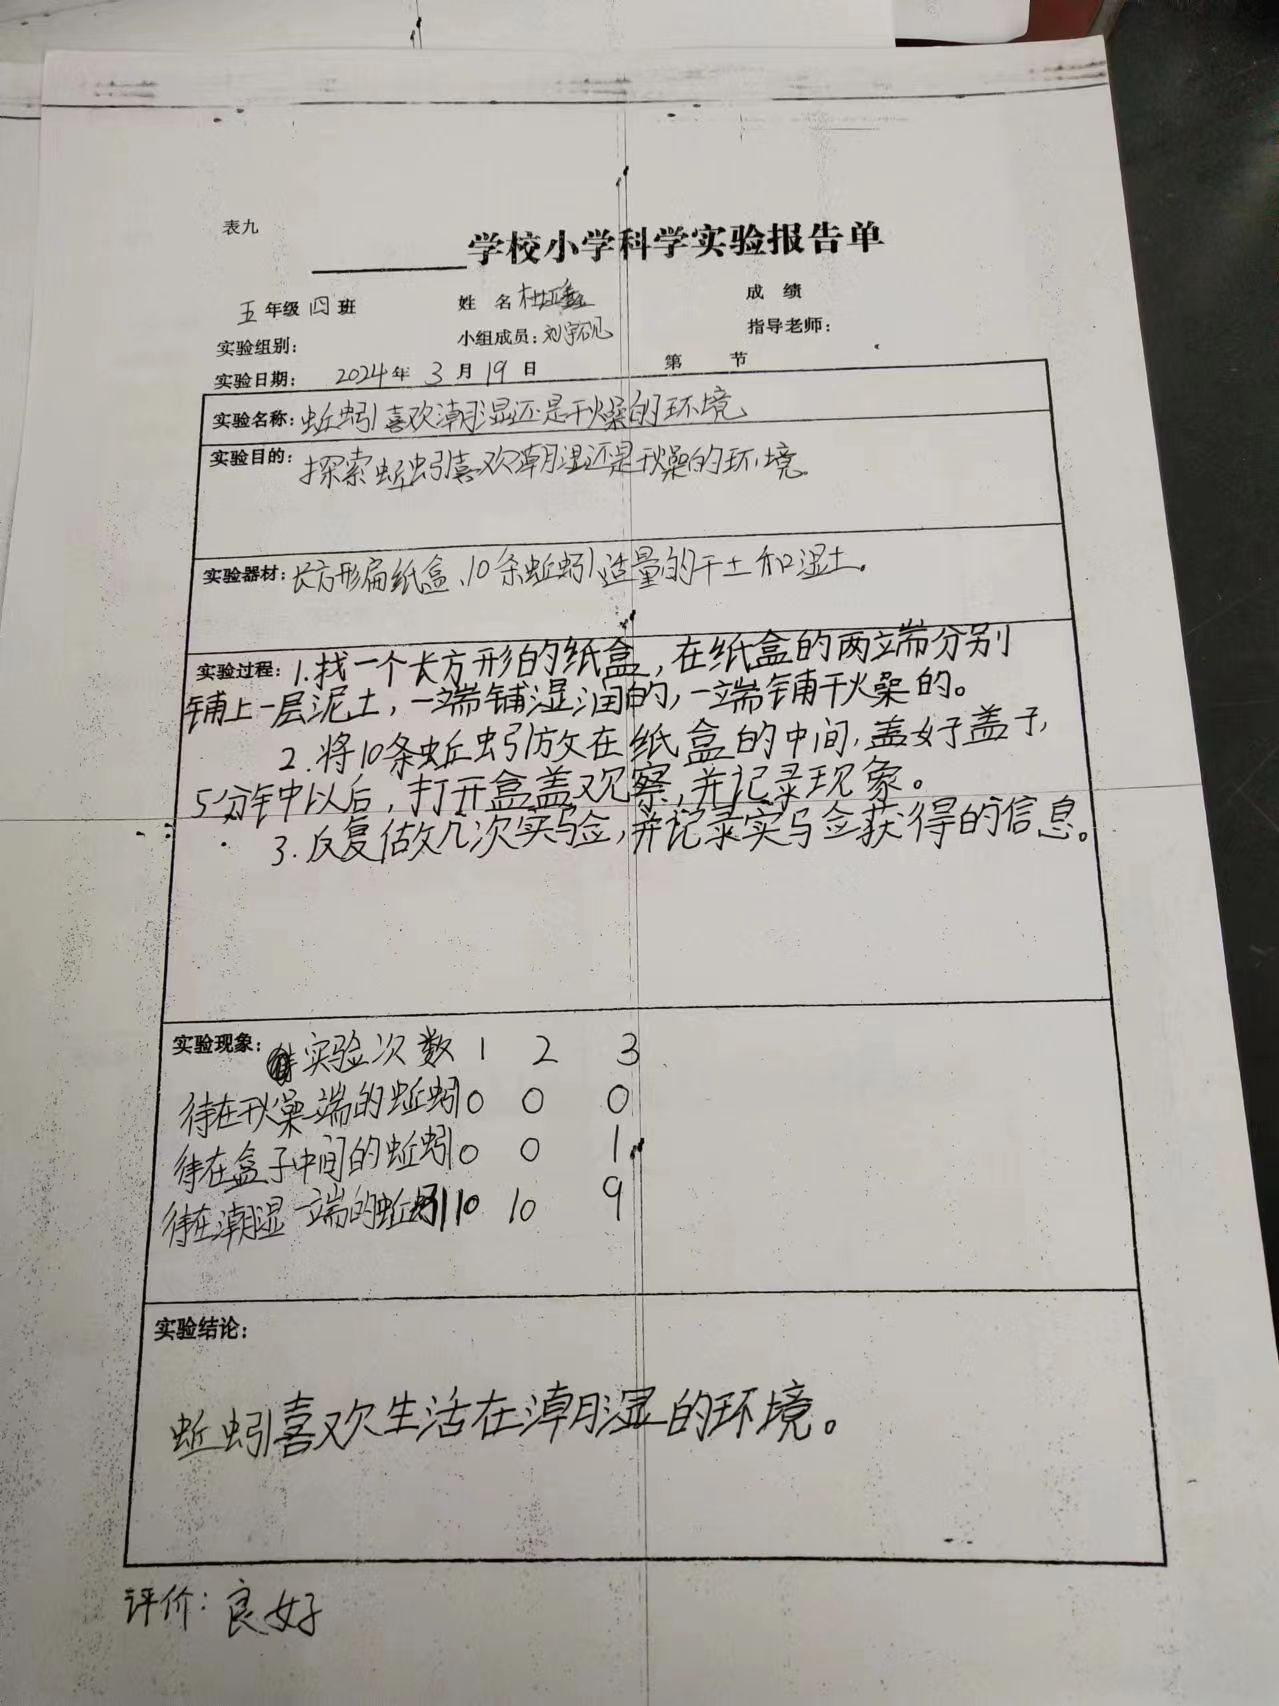 表九
学校小学科学实验报告单
五年级四班 姓 名 成 绩
实验组别： 小组成员：刘宇砚 指导老师：
实验日期： 2024年 3月19日 第 节
实验名称：蚯蚓喜欢潮湿还是干燥的环境
实验目的：探索蚯蚓喜欢潮湿还是干燥的环境.
实验器材：长方形扁纸盒、10条蚯蚓、适量的干土和湿土。
实验过程：1.找一个长方形的纸盒，在纸盒的两端分别
铺上一层泥土，一端铺湿润的，一端铺干燥的。
2.将10条蚯蚓放在纸盒的中间，盖好盖子，
5分钟以后，打开盒盖观察，并记录现象。
3.反复做几次实验，并记录实验获得的信息。
实验现象： 实验次数 1 2 3
待在干燥一端的蚯蚓 0 0 0
待在盒子中间的蚯蚓 0 0 1
待在潮湿一端的蚯蚓 10 10 9
实验结论：
蚯蚓喜欢生活在潮湿的环境。
评价：良好